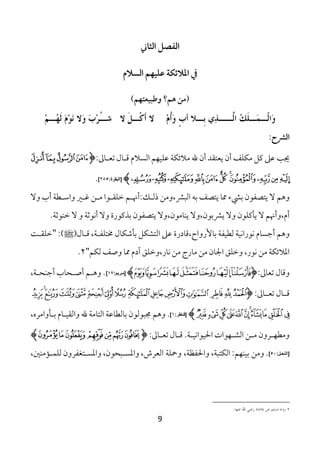 الفصل الثاني
في الملائكة عليهم السلام
(من هم؟ وطبيعتهم)
وَالْـــمَـــلَـــكُ الَّـــذِي بِـــلا أبٍ وَأُمْ لا أكْـــلَ لا شُـــرْبَ وَلا نَوْمَ لَهُـــمْ
الشرح:
يجب على كل مكلف أن يعتقد أن لله ملائكة عليهم السلام قـال تعـالى: ﴿ءَامَنَ ٱلرَّسُولُ بِمَآ أُنزِلَ
إِلَيْهِ مِن رَّبِّهِۦ وَٱلْمُؤْمِنُونَ كُلٌّ ءَامَنَ بِٱللَّهِ وَمَلَٰٓئِكَتِهِۦ وَكُتُبِهِۦ وَرُسُلِهِۦ﴾ [البقرة: ٢٨٥].
وهم لا يتصفون بشيء مما يتصف به البشر،ومن ذلك:أنهـم خلقـوا مـن غـير واسـطة أب ولا
أم،وأنهم لا يأكلون ولا يشربون،ولا ينامون،ولا يتصفون بذكورة ولا أنوثة و لا خنوثة.
وهم أجسام نورانية لطيفة بالأرواح،قادرة على التشكل بأشكال مختلفـة، قـال(ﷺ): "خلقـت
الملائكة من نور، وخلق الجان من مارج من نار،وخلق آدم مما وصف لكم"٢.
وقال تعالى: ﴿فَأَرْسَلْنَآ إِلَيْهَا رُوحَنَا فَتَمَثَّلَ لَهَا بَشَرًا سَوِيًّا﴾ وهـم أصـحاب أجنحـة،
قـال تعـالى: ﴿ٱلْحَمْدُ لِلَّهِ فَاطِرِ ٱلسَّمَٰوَٰتِ وَٱلْأَرْضِ جَاعِلِ ٱلْمَلَٰٓئِكَةِ رُسُلًا أُو۟لِىٓ أَجْنِحَةٍ مَّثْنَىٰ وَثُلَٰثَ وَرُبَٰعَ يَزِيدُ
فِى ٱلْخَلْقِ مَا يَشَآءُ إِنَّ ٱللَّهَ عَلَىٰ كُلِّ شَىْءٍ قَدِيرٌ﴾ وهم مجبولون بالطاعة التامة لله والقيـام بـأوامره،
ومطهـرون مـن الشـهوات الحيوانيـة. قـال تعـالى: ﴿يَخَافُونَ رَبَّهُم مِّن فَوْقِهِمْ وَيَفْعَلُونَ مَا يُؤْمَرُونَ﴾
[النحل: ٥٠]. ومن بينهم: الكتبة، والحفظة، وحملة العرش، والمسـبحون، والمسـتغفرون للمـؤمنين،
٢ رواه مسلم عن عائشة رضي الله عنها.
9